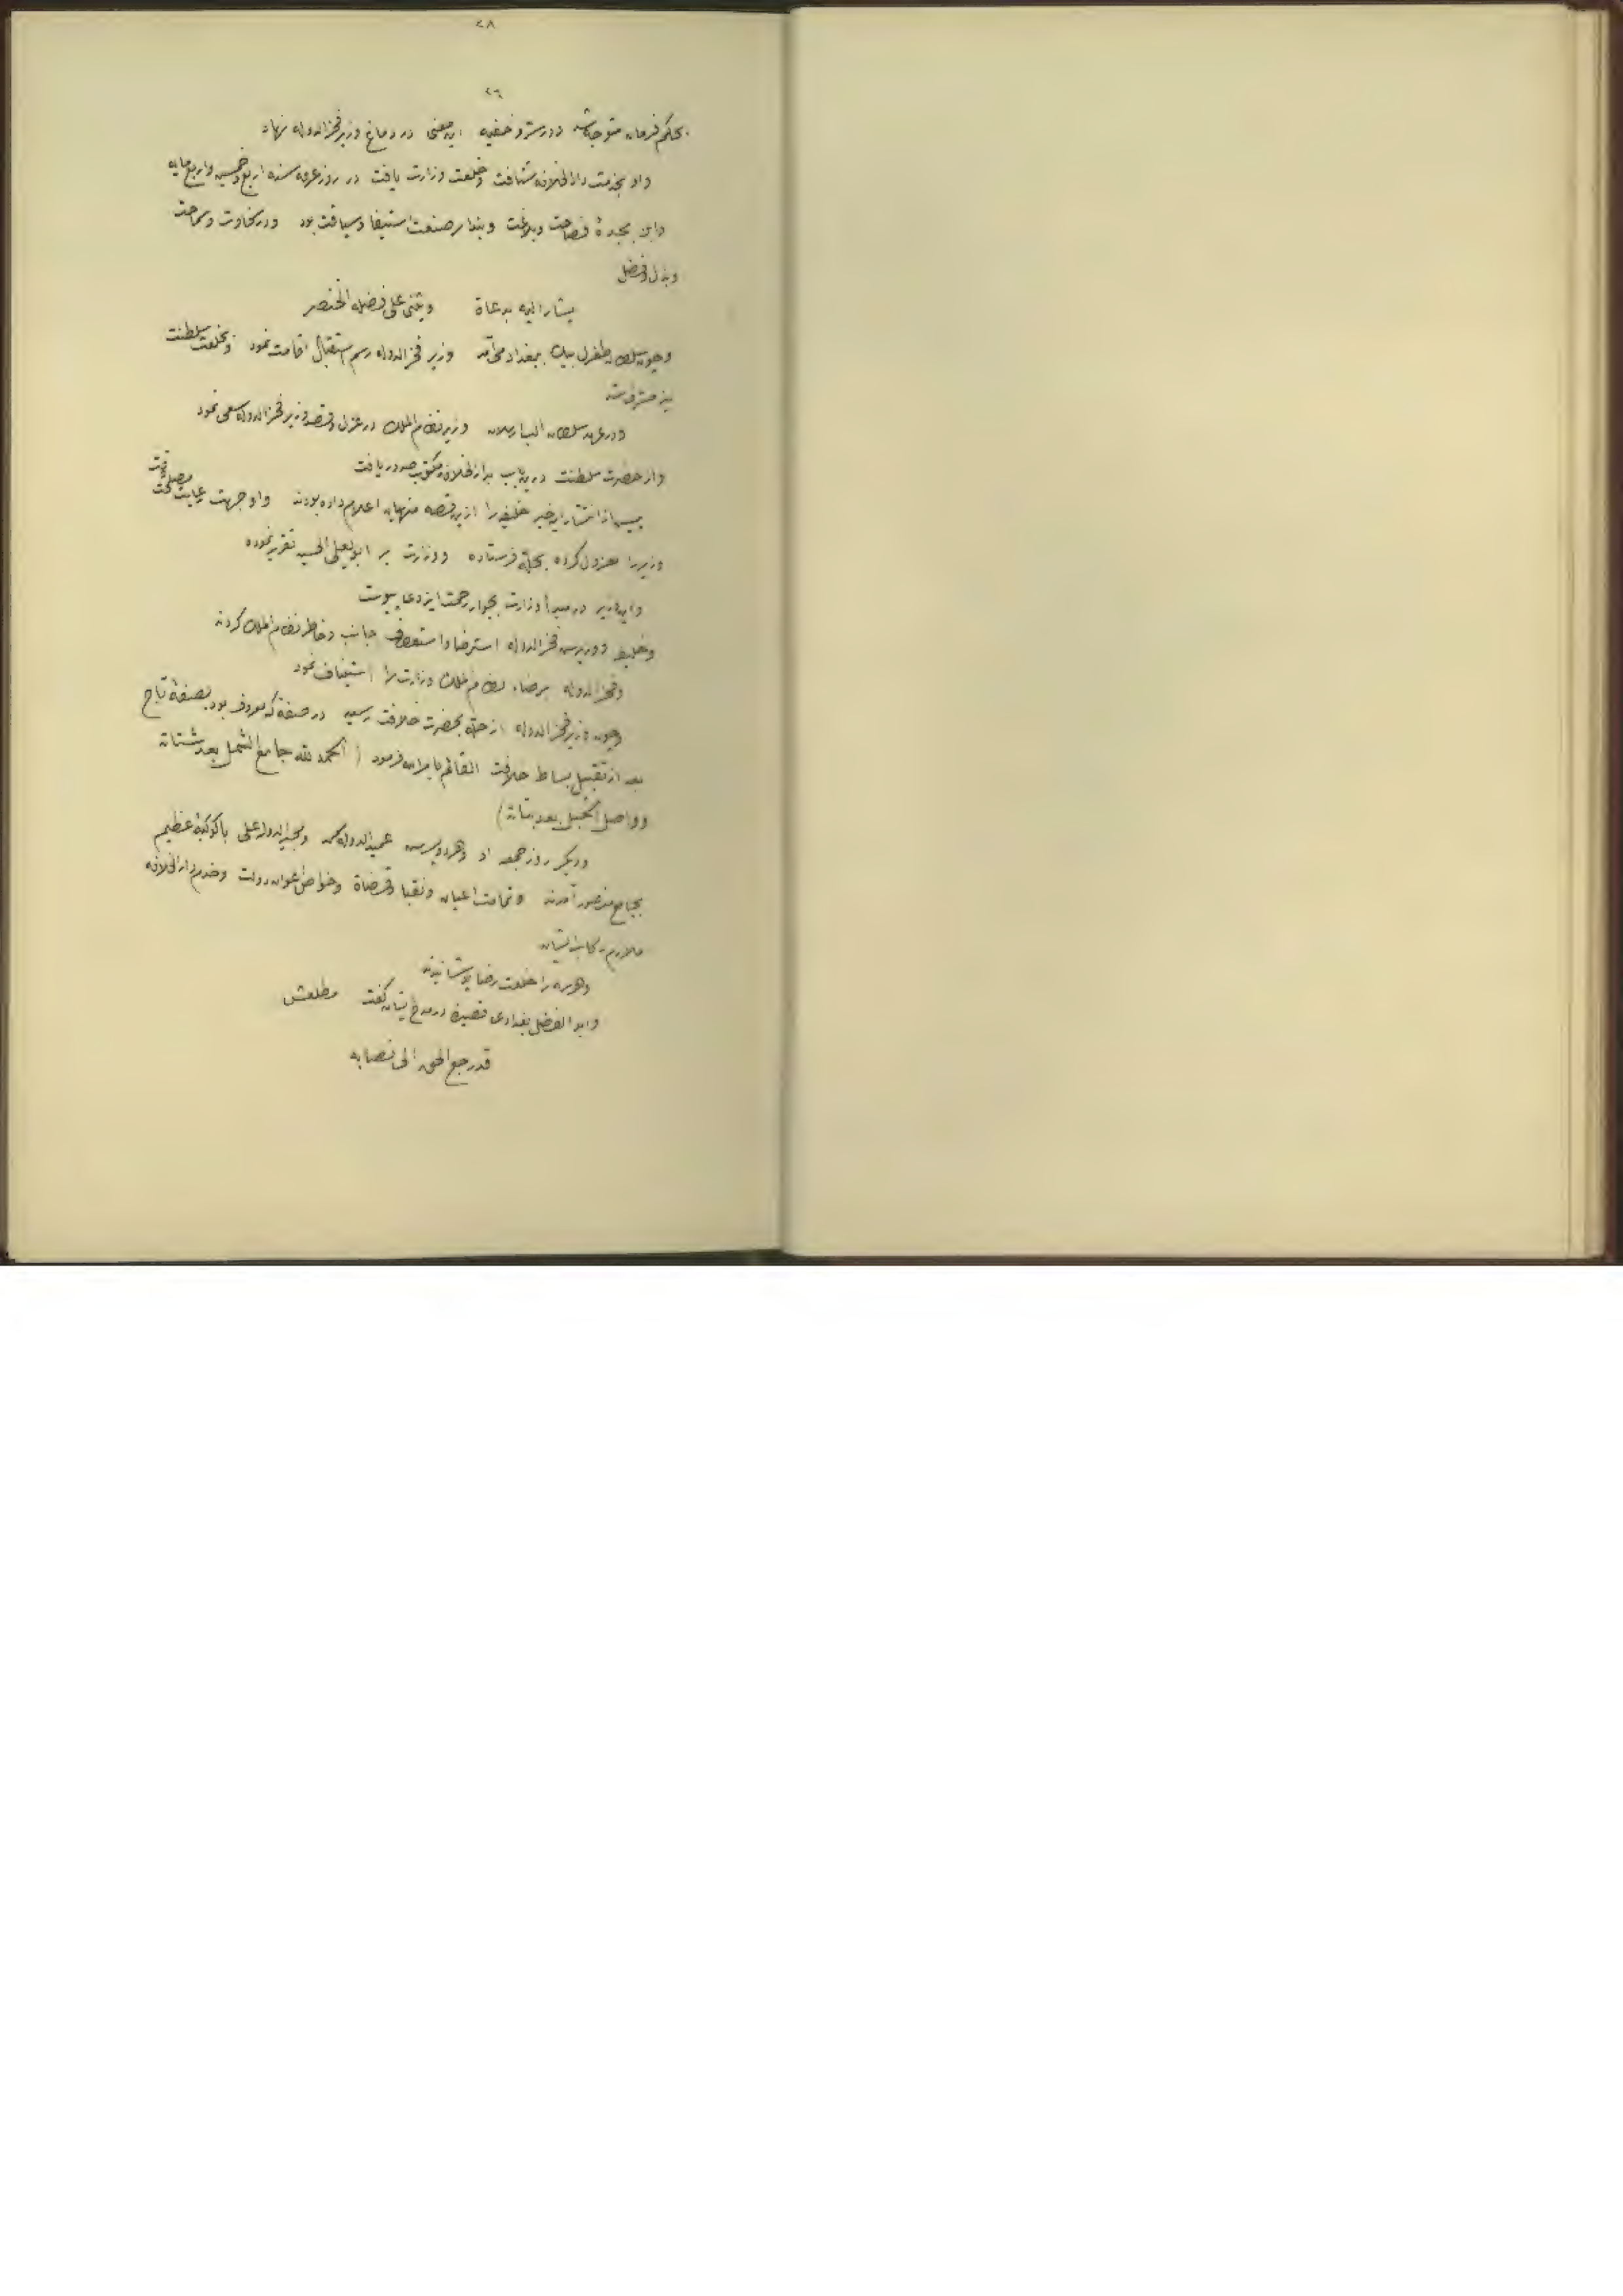 ۲۸
۲٦
بحکم فرمان متوجه شد و در ستر و خفیه این معنی در دماغ وزیر فخرالدوله نهاد
و او بخدمت دارالخلافه شتافت و خلعت وزارت یافت در روز عرفه سنه اربع وخمسین واربعمایه
و این بجدهٔ فصاحت وبلاغت وبندار صنعت استیفا وسیاقت بود ودر سخاوت وسماحت
وبذل وفضل
یشار الیه ویثنی علی فضله الخنصر
وچون سلطان طغرل بیک ببغداد می‌آمد وزیر فخرالدوله رسم استقبال اقامت نمود وبخلعت سلطنت
نیز مشرف شد
ودر عهد سلطان الب ارسلان وزیر نظام الملک در عزل وقصد وزیر فخرالدوله سعی نمود
واز حضرت سلطنت درین باب بدارالخلافه مکتوب صدور یافت
پیش از انتشار این خبر خلیفه را ازین قصه منهیان اعلام داده بودند واو جهت رعایت مصلحت وقت
وزیر را معزول کرده بحله فرستاده ووزارت بر ابو یعلی الحسین تقریر نموده
واین وزیر در مبدأ وزارت بجوار رحمت ایزدی پیوست
وخلیفه ووزیرش فخرالدوله استرضا واستعطاف جانب وخاطر نظام الملک کردند
وفخرالدوله برضاء نظام الملک وزارت را استیناف نمود
وچون وزیر فخرالدوله از حله بحضرت خلافت رسید در صفهٔ که معروف بود بصفهٔ تاج
بعد از تقبیل بساط خلافت القائم بامرالله فرمود (الحمد لله جامع الشمل بعد شتاته
وواصل الحبل بعد بتاته)
ودیگر روز جمعه او وهر دو پسرش عمیدالدوله محمد ومجیرالدوله علی باکوکبهٔ عظیم
بجامع منصور آمدند وتمامت اعیان ونقبا وقضاة وخواص اعوان دولت وخدم دارالخلافه
ملازم رکاب ایشان
وهر سه را خلعت رضا پوشانیدند
وابو الفضل بغدادی قصیدهٔ در مدح ایشان گفت مطلعش
قد رجع الحق الی نصابه